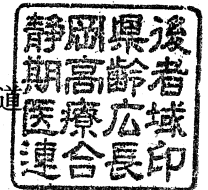 道
静岡県後
期高齢者
医療広域
連合長印